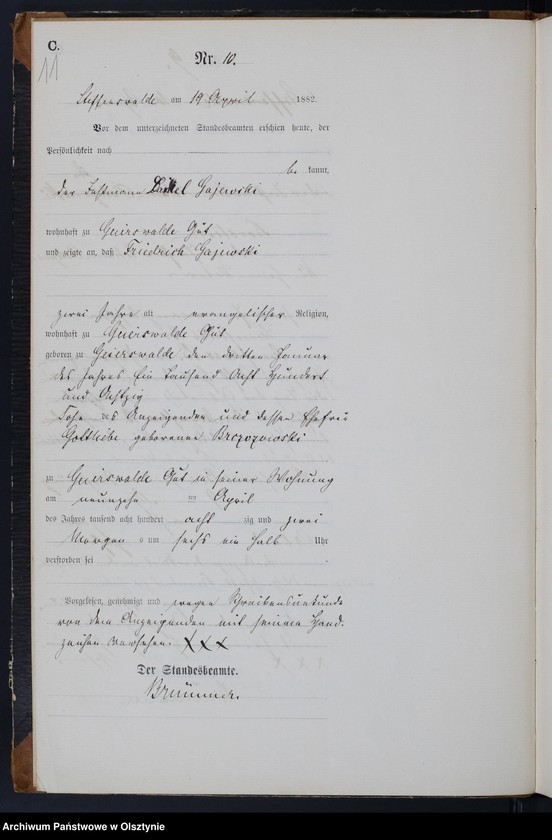 C.
11
Nr. 10.
Steffenswalde am 19 April 1882.
Vor dem unterzeichneten Standesbeamten erschien heute, der
Persönlichkeit nach
be kannt,
der Instmann Gajewski
wohnhaft zu Geierswalde Gut
und zeigte an, daß Friedrich Gajewski
zwei Jahre alt evangelischer Religion,
wohnhaft zu Geierswalde Gut
geboren zu Geierswalde den dritten Januar
des Jahres Ein tausend Acht Hundert
und Achtzig
Sohn des Anzeigenden und dessen Ehefrau
Gottliebe geborenen Brzozowski
zu Geierswalde Gut in seiner Wohnung
am neunzehn ten April
des Jahres tausend acht hundert acht zig und zwei
Morgen s um sechs ein halb Uhr
verstorben sei
Vorgelesen, genehmigt und wegen Schreibensunkunde
von dem Anzeigenden mit seinem Hand-
zeichen versehen. XXX
Der Standesbeamte.
Archiwum Państwowe w Olsztynie